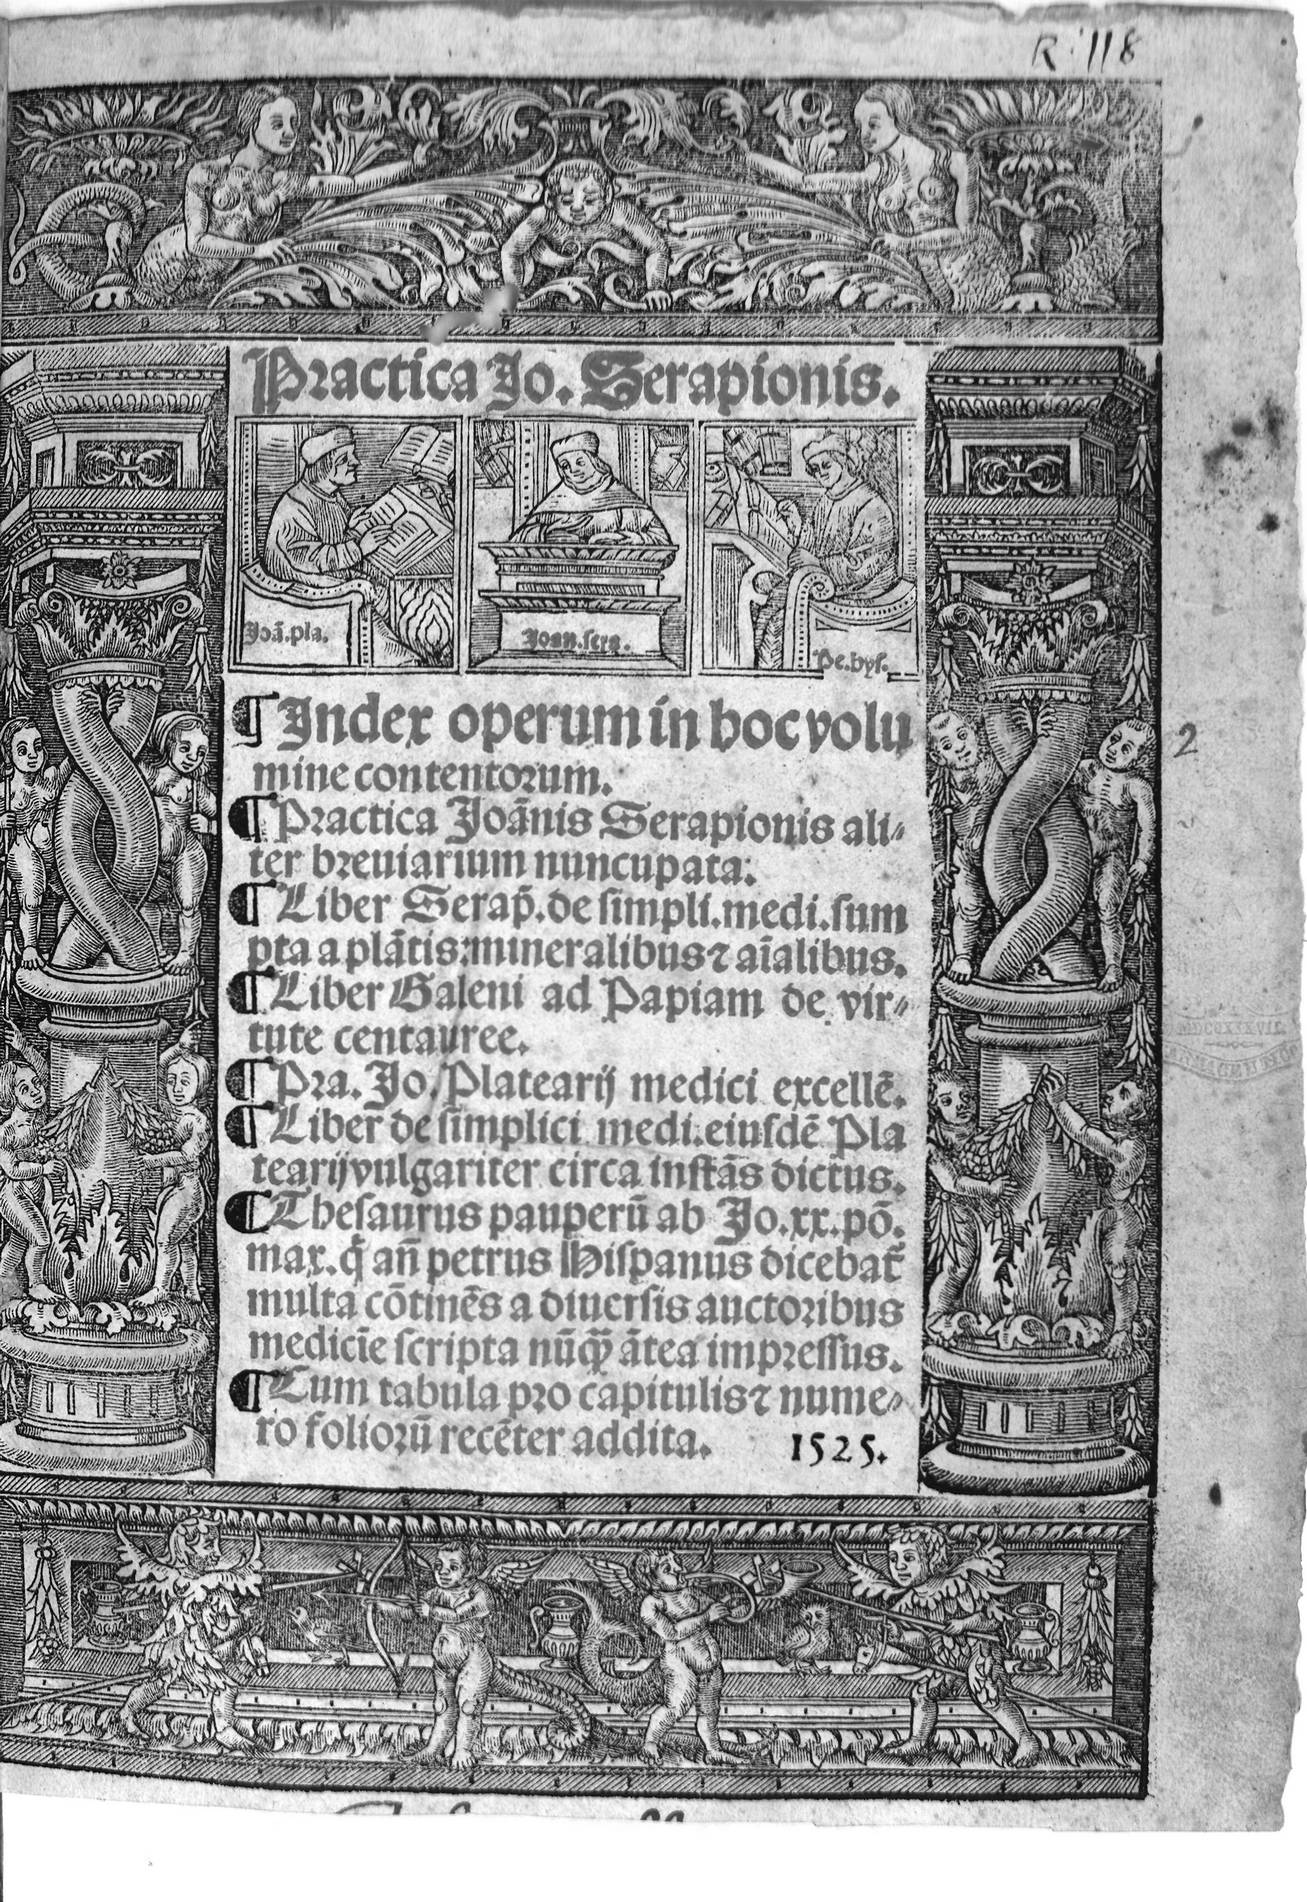 R. 118
Practica Jo. Serapionis.
Joā.pla.
Joan.sera.
Pe.hys.
¶ Index operum in hoc volu
mine contentorum.
¶ Practica Joānis Serapionis ali⸗
ter breuiarium nuncupata:
¶ Liber Serap̄.de simpli.medi.sum
pta a plātis:mineralibus ⁊ aīalibus.
¶ Liber Galeni ad Papiam de vir⸗
tute centauree.
¶ Pra. Jo. Platearij medici excellē.
¶ Liber de simplici medi.eiusdē Pla
tearij vulgariter circa instās dictus.
¶ Thesaurus pauperū ab Jo.xx.pō.
max.q̇ an̄ petrus Hispanus dicebat᷑
multa cōtinēs a diuersis auctoribus
medicīe scripta nūq̄ꝫ ātea impressus.
¶ Cum tabula pro capitulis ⁊ nume⸗
ro foliorū recēter addita. 1525.
2